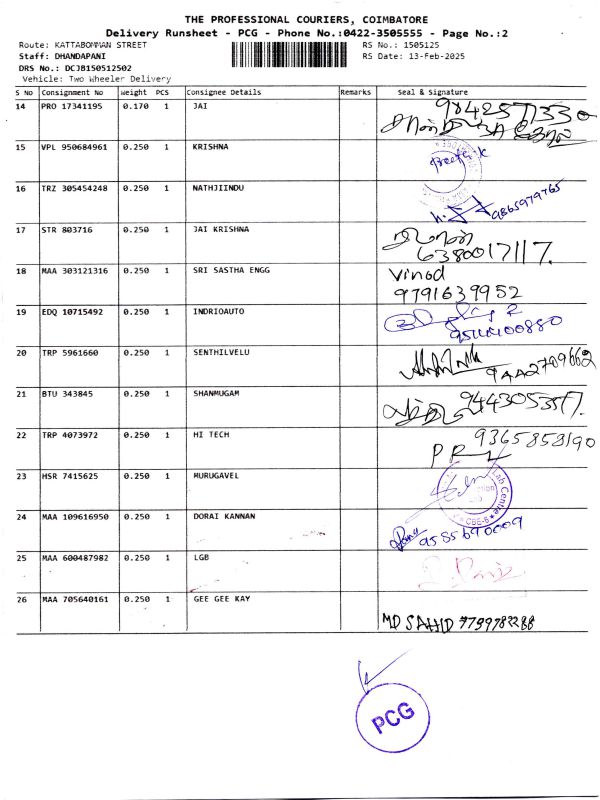 THE PROFESSIONAL COURIERS, COIMBATORE
Delivery Runsheet - PCG - Phone No.:0422-3505555 - Page No.:2
Route: KATTABOMMAN STREET RS No.: 1505125
Staff: DHANDAPANI RS Date: 13-Feb-2025
DRS No.: DCJB150512502
Vehicle: Two Wheeler Delivery
S No Consignment No Weight PCS Consignee Details Remarks Seal & Signature
14 PRO 17341195 0.170 1 JAI
15 VPL 950684961 0.250 1 KRISHNA
16 TRZ 305454248 0.250 1 NATHJIINDU 9865979765
17 STR 803716 0.250 1 JAI KRISHNA
6380017117.
18 MAA 303121316 0.250 1 SRI SASTHA ENGG Vinod
9791639952
19 EDQ 10715492 0.250 1 INDRIOAUTO
20 TRP 5961660 0.250 1 SENTHILVELU
21 BTU 343845 0.250 1 SHANMUGAM
22 TRP 4073972 0.250 1 HI TECH 9365858190
23 HSR 7415625 0.250 1 MURUGAVEL Lab Centre CBE-8
24 MAA 109616950 0.250 1 DORAI KANNAN
9585690009
25 MAA 600487982 0.250 1 LGB
26 MAA 705640161 0.250 1 GEE GEE KAY
MD SAHID 7799782288
PCG